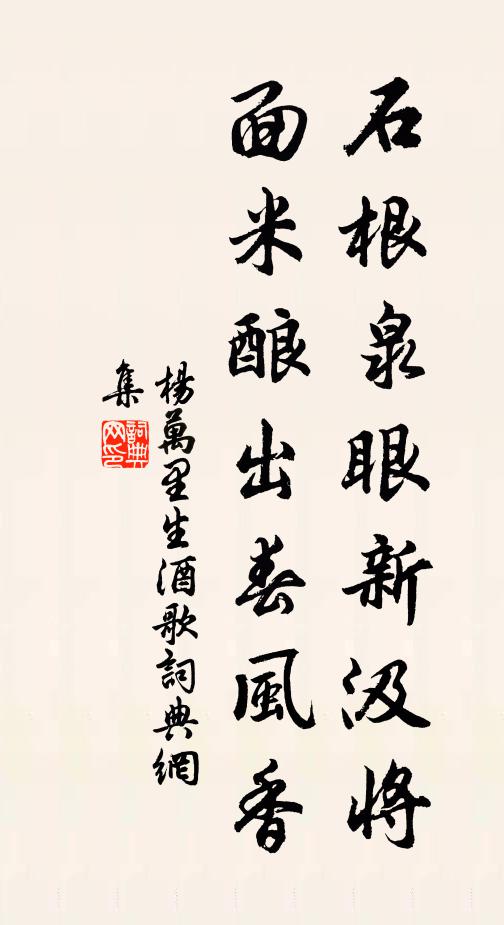 石根泉眼新汲將
面米酿出春風香
楊萬里生酒歌詞典網
集
詞典
网印